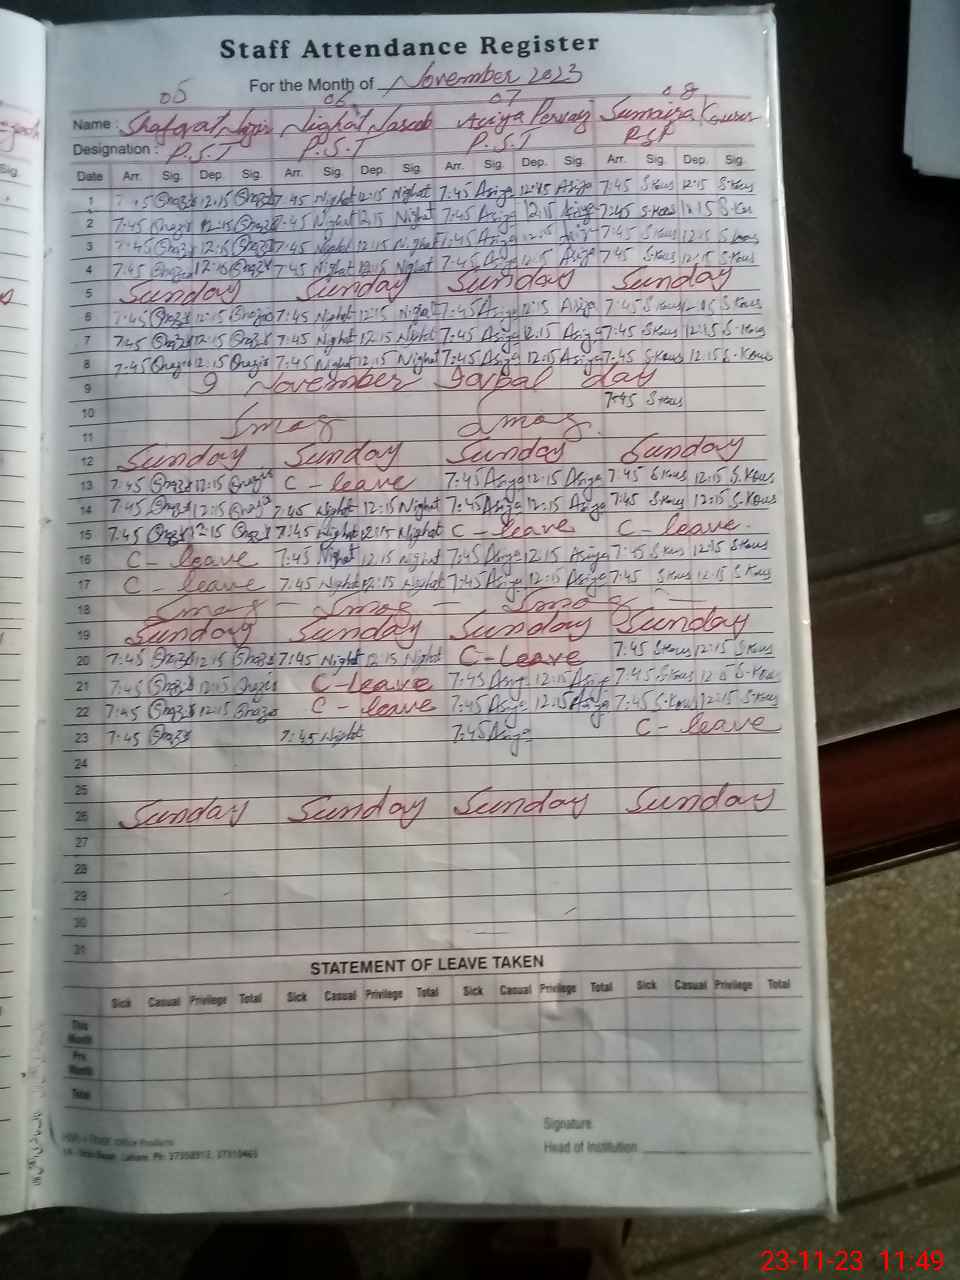 Staff Attendance Register
For the Month of November 2023
05 06 07 08
Name : Shafqat Nazir Nighat Naseeb Asiya Pervaiz Sumaira Kousar
Designation : P.S.T P.S.T P.S.T PST
Date Arr. Sig. Dep. Sig. Arr. Sig. Dep. Sig. Arr. Sig. Dep. Sig. Arr. Sig. Dep. Sig.
1 12:15 7:45 Nighat 12:15 Nighat 7:45 Asiya 12:15 Asiya 7:45 S.Kous 12:15 S.Kous
2 7:45 12:15 7:45 Nighat 12:15 Nighat 7:45 Asiya 12:15 Asiya 7:45 S.Kous 12:15 S.Kou
3 7:45 12:15 7:45 Nighat 12:15 Nighat 7:45 Asiya 12:15 Asiya 7:45 S.Kous 12:15 S.Kous
4 7:45 12:15 7:45 Nighat 12:15 Nighat 7:45 Asiya 12:15 Asiya 7:45 S.Kous 12:15 S.Kous
5 Sunday Sunday Sunday Sunday
6 7:45 12:15 7:45 Nighat 12:15 Nighat 7:45 Asiya 12:15 Asiya 7:45 S.Kous 12:15 S.Kous
7 7:45 12:15 7:45 Nighat 12:15 Nighat 7:45 Asiya 12:15 Asiya 7:45 S.Kous 12:15 S.Kous
8 7:45 12:15 7:45 Nighat 12:15 Nighat 7:45 Asiya 12:15 Asiya 7:45 S.Kous 12:15 S.Kous
9 9 November Iqbal day
10 7:45 S.Kous
11 Smog Smog
12 Sunday Sunday Sunday Sunday
13 7:45 12:15 C-leave 7:45 Asiya 12:15 Asiya 7:45 S.Kous 12:15 S.Kous
14 7:45 12:15 7:45 Nighat 12:15 Nighat 7:45 Asiya 12:15 Asiya 7:45 S.Kous 12:15 S.Kous
15 7:45 12:15 7:45 Nighat 12:15 Nighat C-leave C-leave.
16 C-leave 7:45 Nighat 12:15 Nighat 7:45 Asiya 12:15 Asiya 7:45 S.Kous 12:15 S.Kous
17 C-leave 7:45 Nighat 12:15 Nighat 7:45 Asiya 12:15 Asiya 7:45 S.Kous 12:15 S.Kous
18 Smog - Smog - Smog -
19 Sunday Sunday Sunday Sunday
20 7:45 12:15 7:45 Nighat 12:15 Nighat C-Leave 7:45 S.Kous 12:15 S.Kous
21 7:45 12:15 C-Leave 7:45 Asiya 12:15 Asiya 7:45 S.Kous 12:15 S.Kous
22 7:45 12:15 C-leave 7:45 Asiya 12:15 Asiya 7:45 S.Kous 12:15 S.Kous
23 7:45 7:45 Nighat 7:45 Asiya C-leave
24
25
26 Sunday Sunday Sunday Sunday
27
28
29
30
31
STATEMENT OF LEAVE TAKEN
Sick Casual Privilege Total Sick Casual Privilege Total Sick Casual Privilege Total Sick Casual Privilege Total
This Month
Pre. Month
Total
Signature
Head of Institution
Lahore. Ph: 37358913, 37310465
23-11-23 11:49